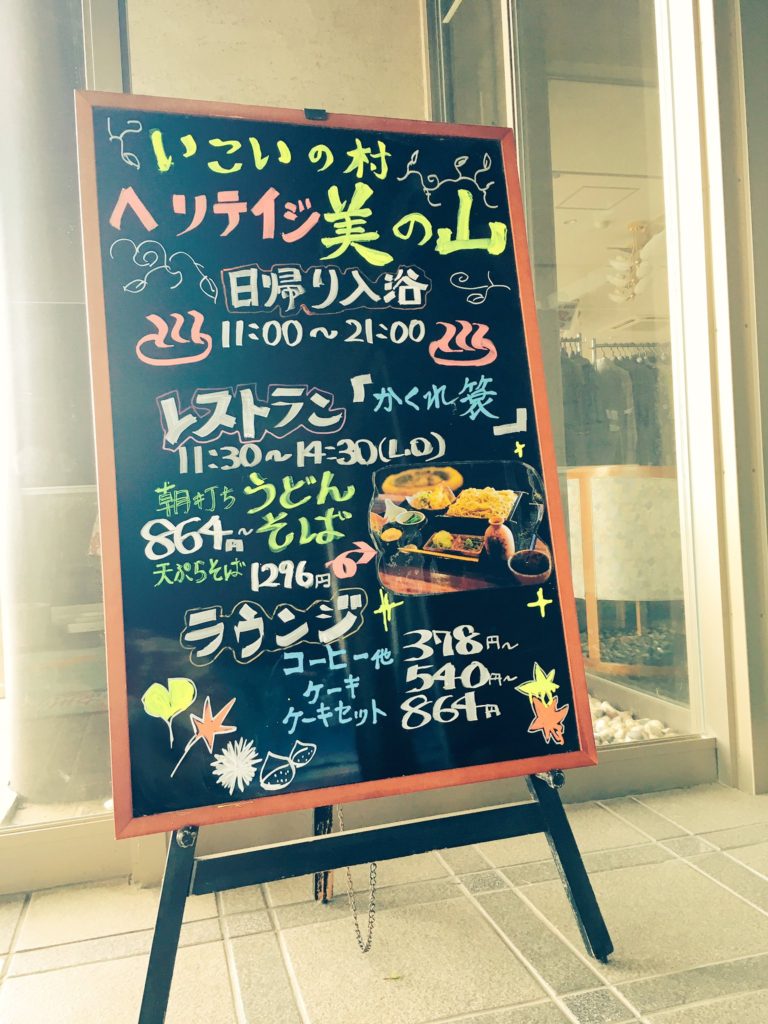 いこいの村
ヘリテイジ美の山
日帰り入浴
11:00～21:00
レストラン『かくれ蓑』
11:30～14:30(L.O)
朝打ち うどん
864円～ そば
天ぷらそば 1296円
ラウンジ
コーヒー他 378円～
ケーキ 540円～
ケーキセット 864円